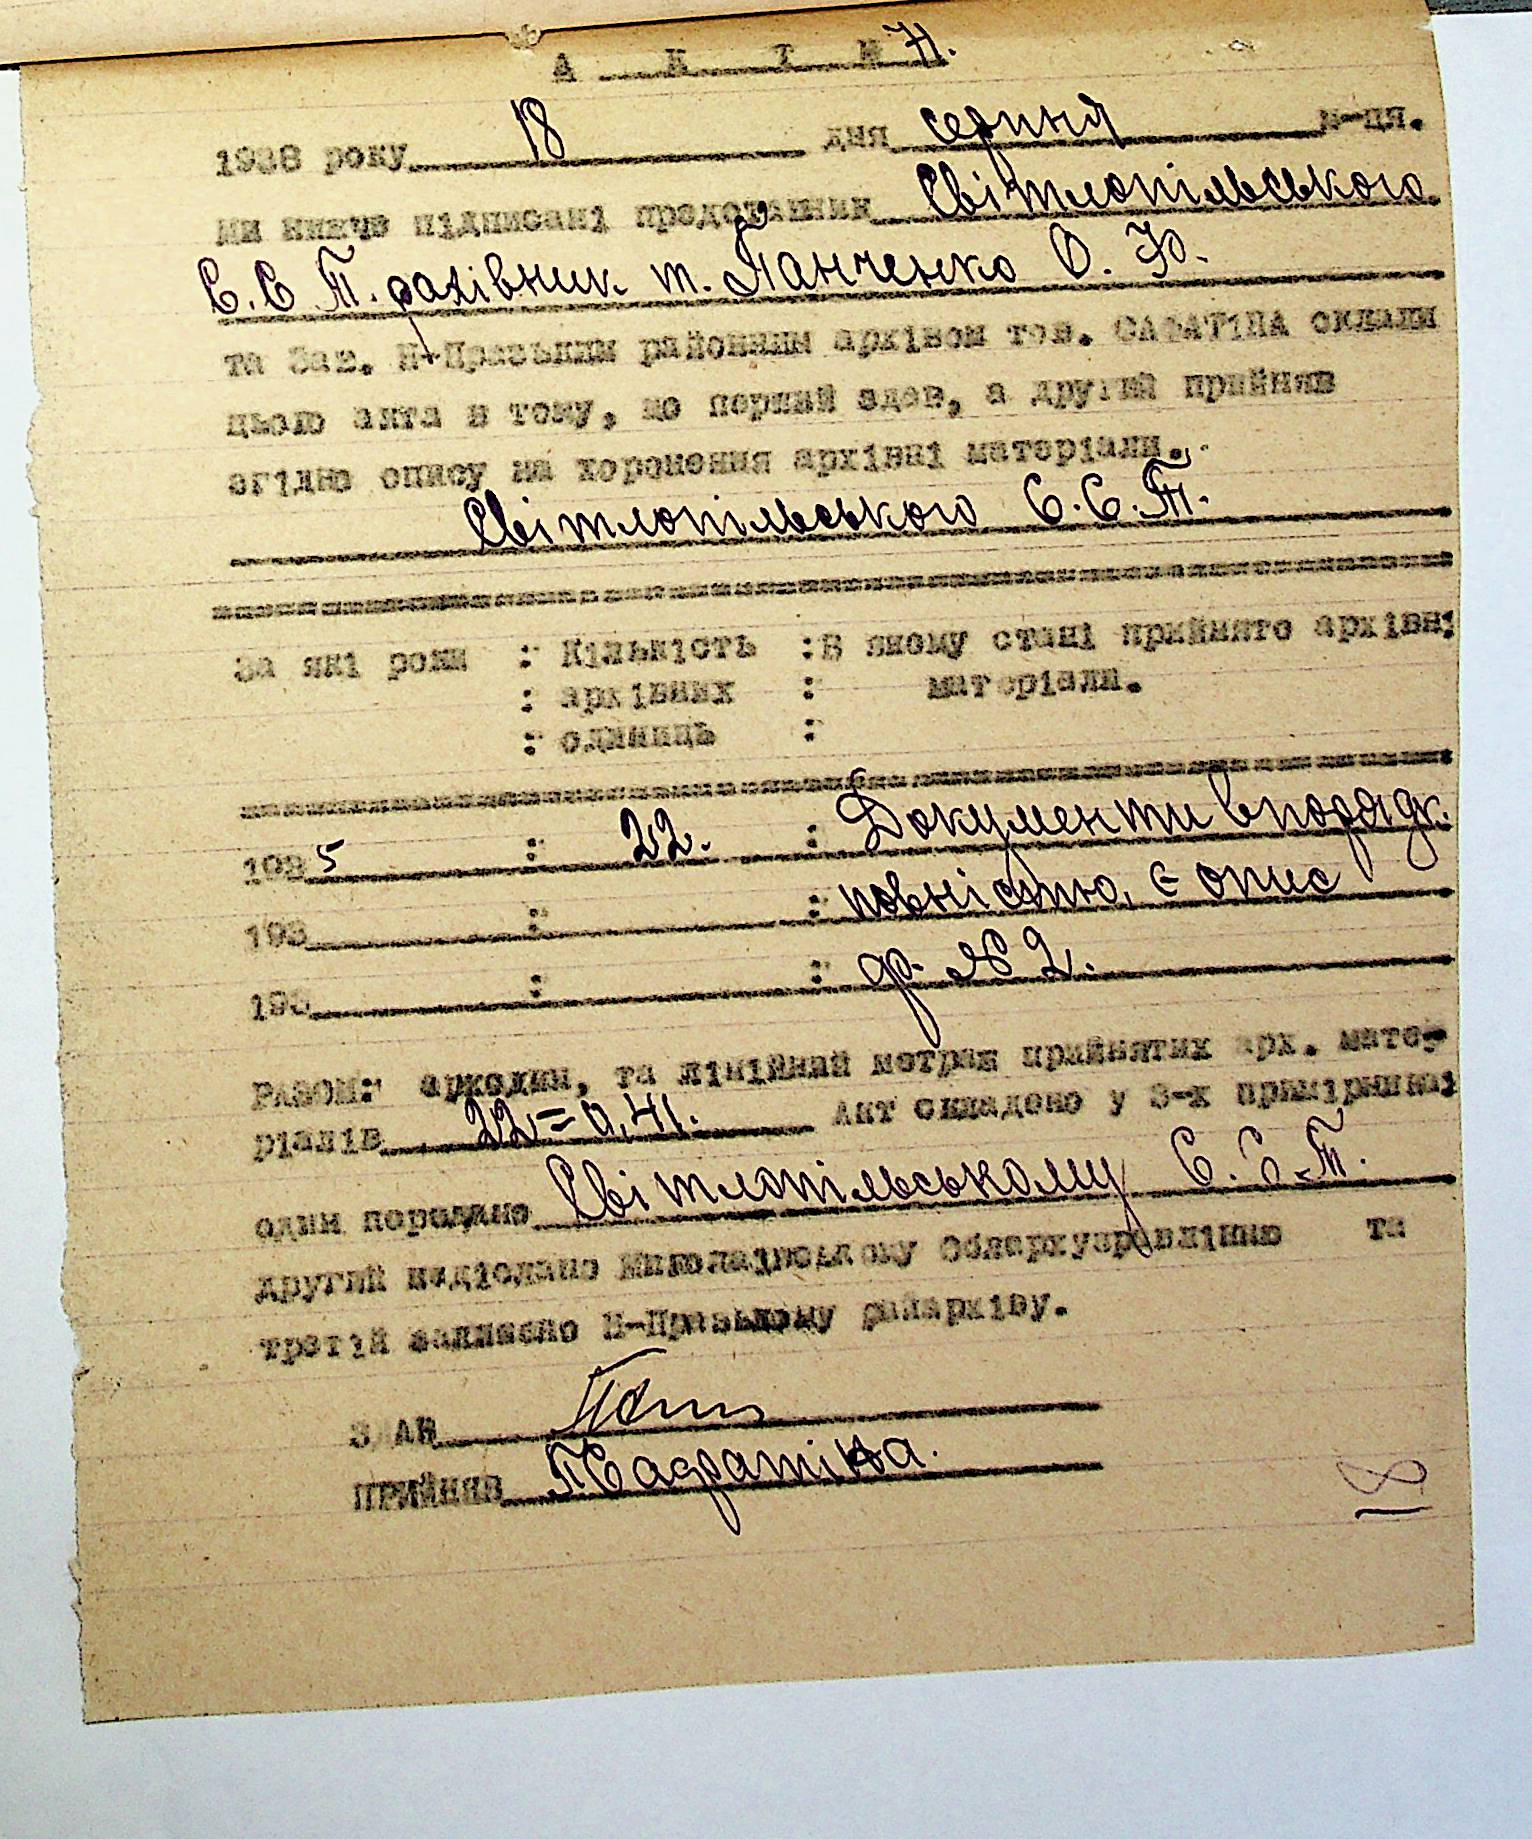 А К Т № 71.
1938 року 18 дня серпня м-ця.
Ми нижче підписані представник Світлопільського
С.С.Т. рахівник т. Панченко О. Ю.
та Зав. Н-Празьким районним архівом тов. САФАТІНА склали
цього акта в тому, що перший здав, а другий прийняв
згідно опису на хоронення архівні матеріали.
Світлопільського С.С.Т.
За які роки : Кількість : В якому стані прийнято архівні
: архівних : матеріали.
: одиниць :
1935 : 22. : Документи впорядк.
193 : : повністю, є опис
193 : : ф. № 2.
РАЗОМ: аркодин, та лінійний метраж прийнятих арх. мате-
ріалів 22=0,41. Акт складено у 3-х примірниках
один передано Світлопільському С.С.Т.
другий надіслано Миколаївському Облархуправлінню та
третій залишено Н-Празькому райархіву.
ЗДАВ
ПРИЙНЯВ